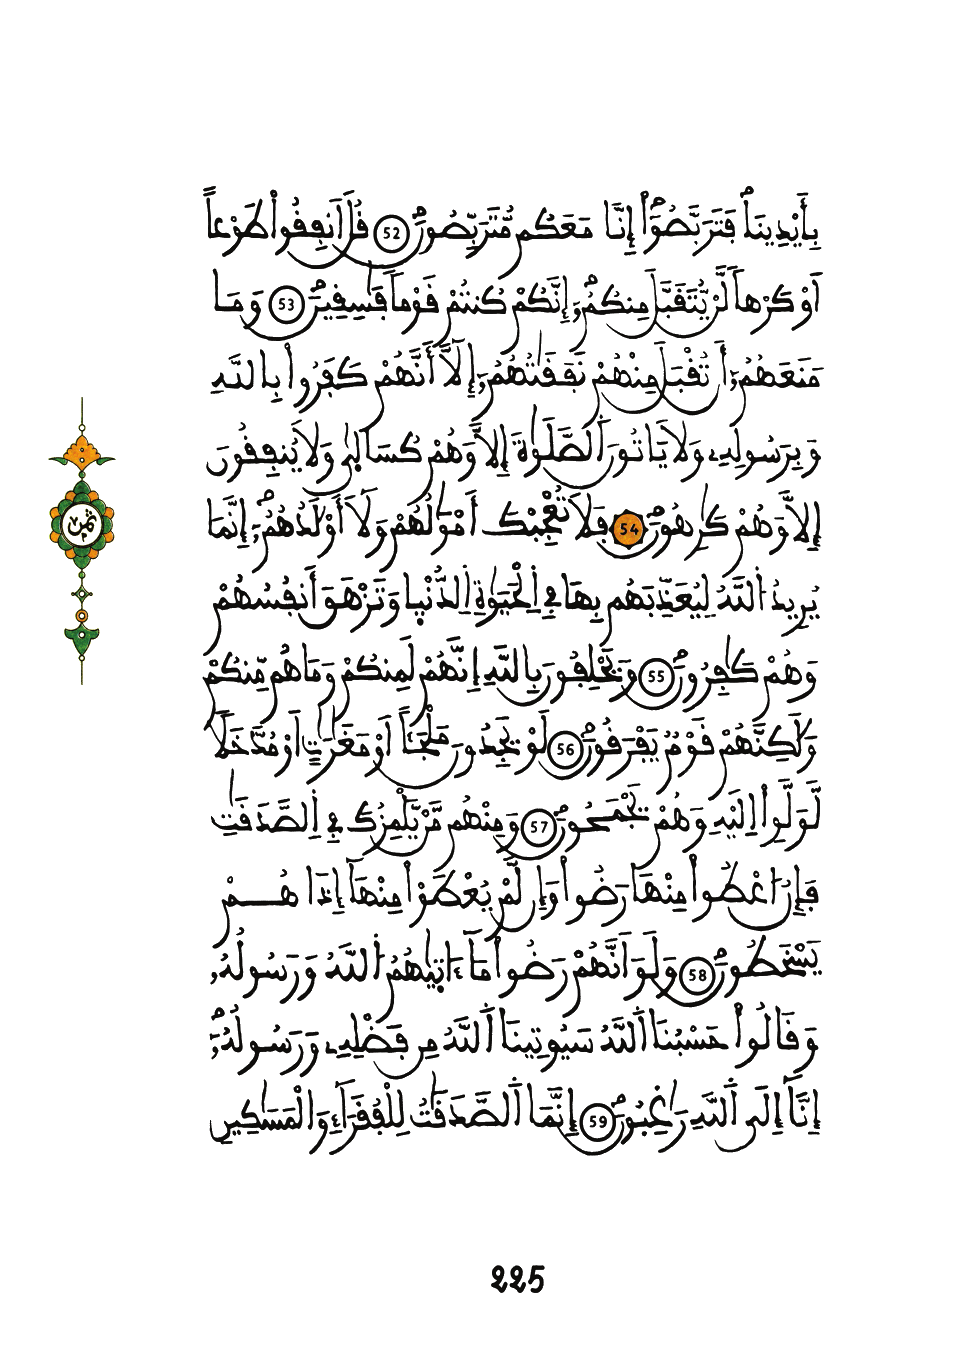 بِأَيْدِينَا فَتَرَبَّصُوٓاْ إِنَّا مَعَكُم مُّتَرَبِّصُونَ 52 قُلَ اَنفِقُواْ طَوْعاً
اَوْ كَرْهاً لَّنْ يُّتَقَبَّلَ مِنكُمُۥٓ إِنَّكُمْ كُنتُمْ قَوْماً فَٰسِقِينَ 53 وَمَا
مَنَعَهُمُۥٓ أَن تُقْبَلَ مِنْهُمْ نَفَقَٰتُهُمُۥٓ إِلَّآ أَنَّهُمْ كَفَرُواْ بِاللَّهِ
وَبِرَسُولِهِۦ وَلَا يَاتُونَ اَ۬لصَّلَوٰةَ إِلَّا وَهُمْ كُسَالَىٰ وَلَا يُنفِقُونَ
إِلَّا وَهُمْ كَٰرِهُونَ 54 فَلَا تُعْجِبْكَ أَمْوَٰلُهُمْ وَلَآ أَوْلَٰدُهُمُۥٓ إِنَّمَا
يُرِيدُ اُ۬للَّهُ لِيُعَذِّبَهُم بِهَا فِے اِ۬لْحَيَوٰةِ اِ۬لدُّنْيٜا وَتَزْهَقَ أَنفُسُهُمْ
وَهُمْ كَٰفِرُونَ 55 وَيَحْلِفُونَ بِاللَّهِ إِنَّهُمْ لَمِنكُمْ وَمَا هُم مِّنكُمْ
وَلَٰكِنَّهُمْ قَوْمٌ يَفْرَقُونَ 56 لَوْ يَجِدُونَ مَلْجَـٔاً اَوْ مَغَٰرَٰتٍ اَوْ مُدَّخَلاً
لَّوَلَّوِاْ اِلَيْهِ وَهُمْ يَجْمَحُونَ 57 وَمِنْهُم مَّنْ يَّلْمِزُكَ فِے اِ۬لصَّدَقَٰتِ
فَإِنُ اعْطُواْ مِنْهَا رَضُواْ وَإِن لَّمْ يُعْطَوْاْ مِنْهَآ إِذَا هُمْ
يَسْخَطُونَ 58 وَلَوَ اَنَّهُمْ رَضُواْ مَآ ءَات۪يٰهُمُ اُ۬للَّهُ وَرَسُولُهُۥ
وَقَالُواْ حَسْبُنَا اَ۬للَّهُ سَيُوتِينَا اَ۬للَّهُ مِن فَضْلِهِۦ وَرَسُولُهُۥٓ
إِنَّآ إِلَى اَ۬للَّهِ رَٰغِبُونَ 59 إِنَّمَا اَ۬لصَّدَقَٰتُ لِلْفُقَرَآءِ وَالْمَسَٰكِينِ
ثمن
225